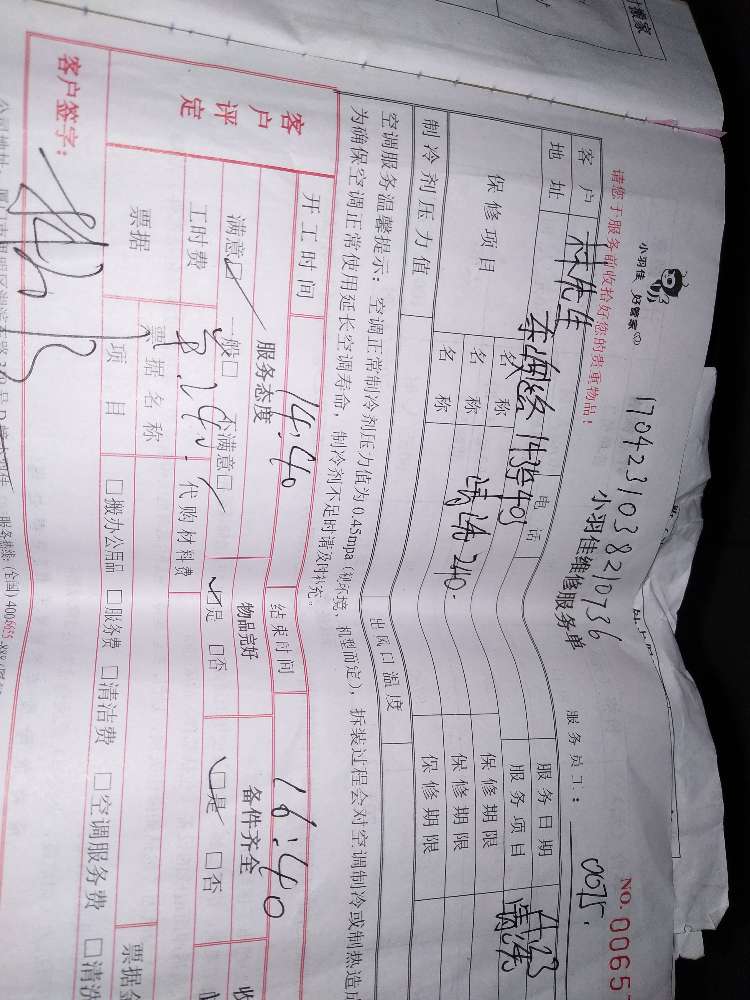 搬家
请您于服务前收拾好您的贵重物品：
小羽佳 好管家
1704231038210736
小羽佳维修服务单
服务员工： 0075.
NO. 0065
客户 林先生 电话 服务日期 4.23
地址 服务项目
保修项目 名称 保修期限
名称 清洗 240. 保修期限
名称 保修期限
制冷剂压力值 出风口温度
空调服务温馨提示：空调正常制冷剂压力值为0.45mpa（视环境，机型而定），拆装过程会对空调制冷或制热造成
为确保空调正常使用延长空调寿命，制冷剂不足时请及时补充。
客户评定
开工时间 14:40 结束时间 16:40
服务态度 物品完好 备件齐全
满意□ 一般□ 不满意□ □是 □否 □是 □否
工时费 代购材料费
票据 票据名称 票据金
项目 □搬办公用品 □服务费 □清洁费 □空调服务费 □清洗
客户签字：
服务热线：(全国) 400